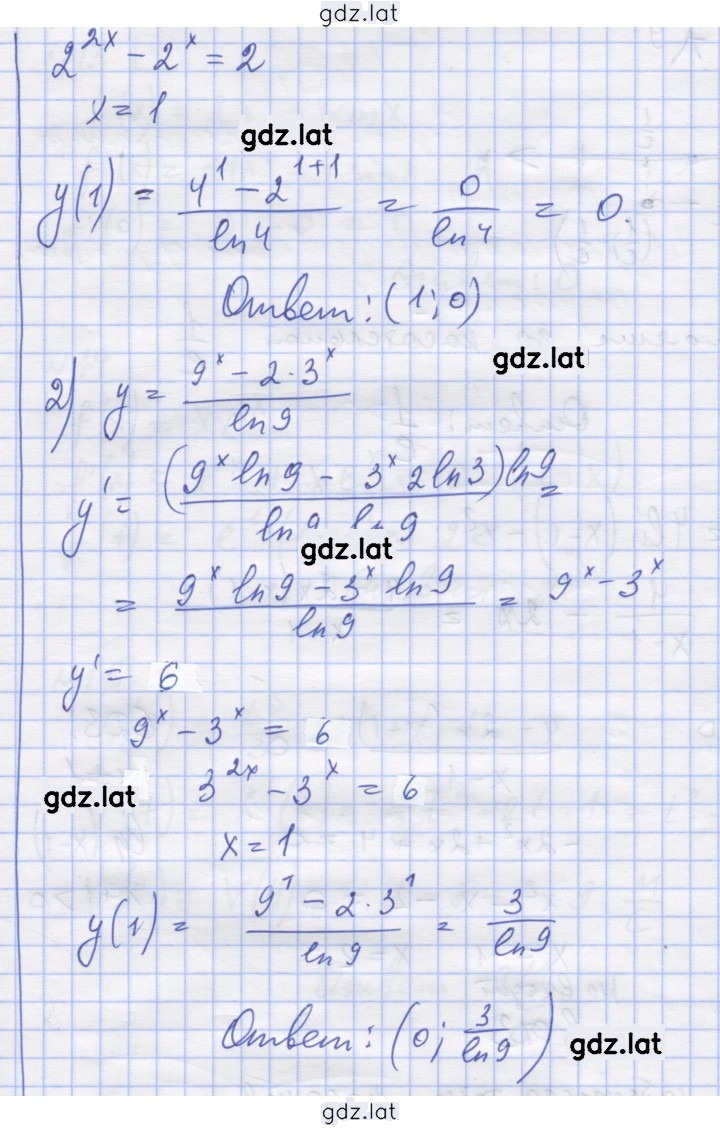 gdz.lat
2^{2x} - 2^x = 2
x = 1
gdz.lat
y(1) = \frac{4^1 - 2^{1+1}}{ln4} = \frac{0}{ln4} = 0.
Ответ: (1; 0)
gdz.lat
2) y = \frac{9^x - 2 \cdot 3^x}{ln9}
y' = \frac{(9^x ln9 - 3^x 2ln3)ln9}{ln9 ln9} =
gdz.lat
= \frac{9^x ln9 - 3^x ln9}{ln9} = 9^x - 3^x
y' = 6
9^x - 3^x = 6
gdz.lat
3^{2x} - 3^x = 6
x = 1
y(1) = \frac{9^1 - 2 \cdot 3^1}{ln9} = \frac{3}{ln9}
Ответ: (0; \frac{3}{ln9})
gdz.lat
gdz.lat